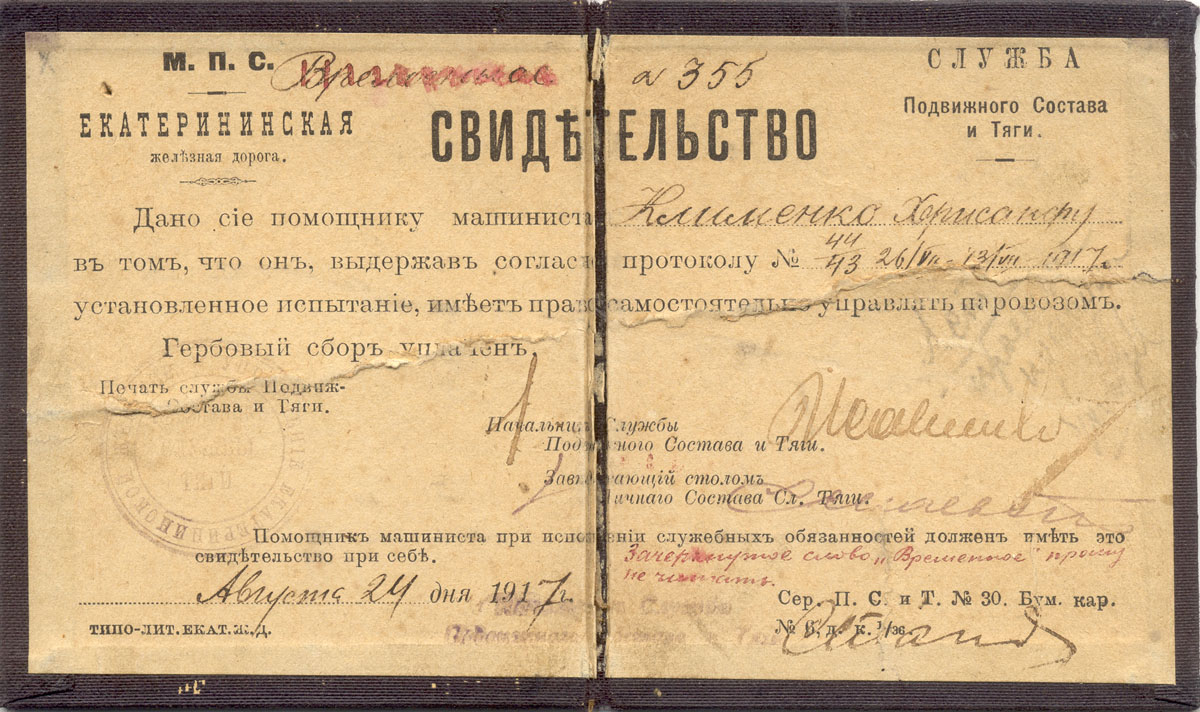 М. П. С. Временное № 355
ЕКАТЕРИНИНСКАЯ
желѣзная дорога.
СЛУЖБА
Подвижного Состава
и Тяги.
СВИДѢТЕЛЬСТВО
Дано сіе помощнику машиниста Клименко Хрисанфу
въ томъ, что онъ, выдержавъ согласно протоколу № 44/43 26/VII - 13/VII 1917 г.
установленное испытаніе, имѣетъ право самостоятельно управлять паровозомъ.
Гербовый сборъ уплаченъ.
Печать службы Подвиж-
Состава и Тяги.
Начальникъ Службы
Подвижного Состава и Тяги.
Завѣдывающій столомъ
Личнаго Состава Сл. Тяги.
Помощникъ машиниста при исполненіи служебныхъ обязанностей долженъ имѣть это
свидѣтельство при себѣ.
Зачеркнутое слово „Временное" прошу
не читать.
Августа 24 дня 1917 г.
Сер. П. С. и Т. № 30. Бум. кар.
ТИПО-ЛИТ. ЕКАТ. Ж. Д.
№ 6. д. к. 1/36